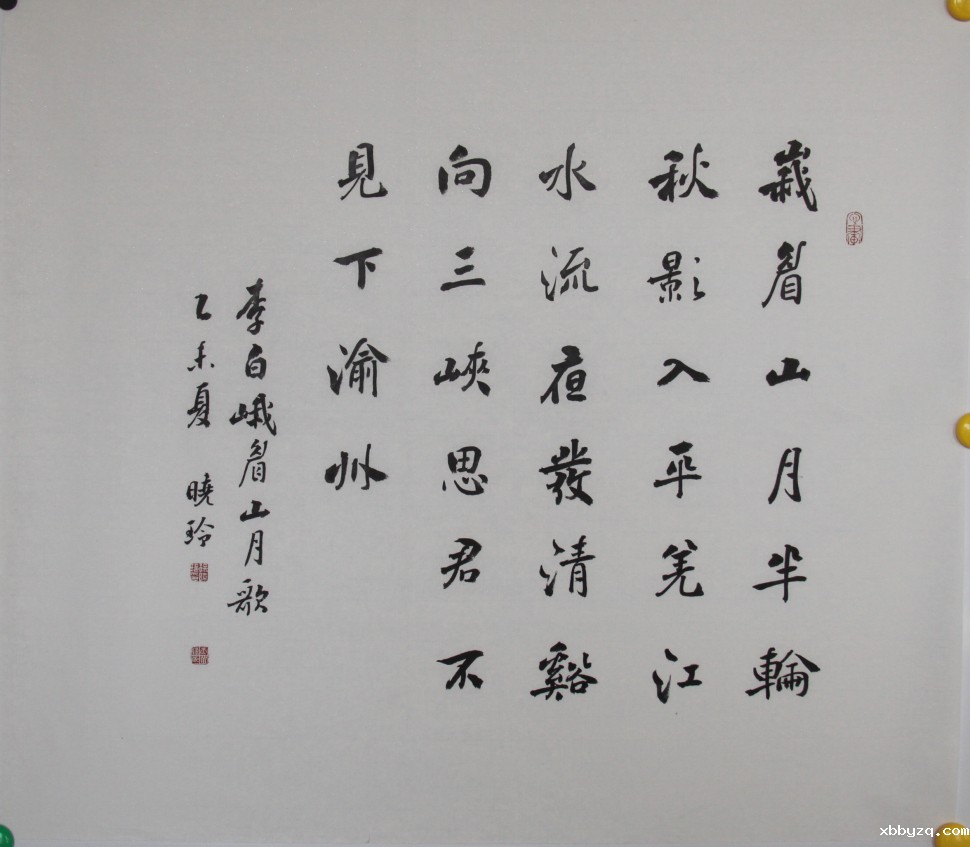 峨眉山月半輪
秋影入平羌江
水流夜發清谿
向三峽思君不
見下渝州
李白峨眉山月歌
乙未夏 曉玲
xbbyzq.com